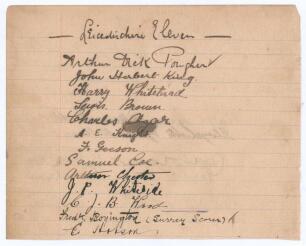 Leicestershire Eleven
Arthur Dick Pougher
John Herbert King
Harry Whitehead
Lewis Brown
Charles
A. E. Knight
F. Geeson
Samuel Coe
Arthur
J. P. Whiteside
C. J. B. Wood
Fredk Boyington (Surrey Scorer)
C